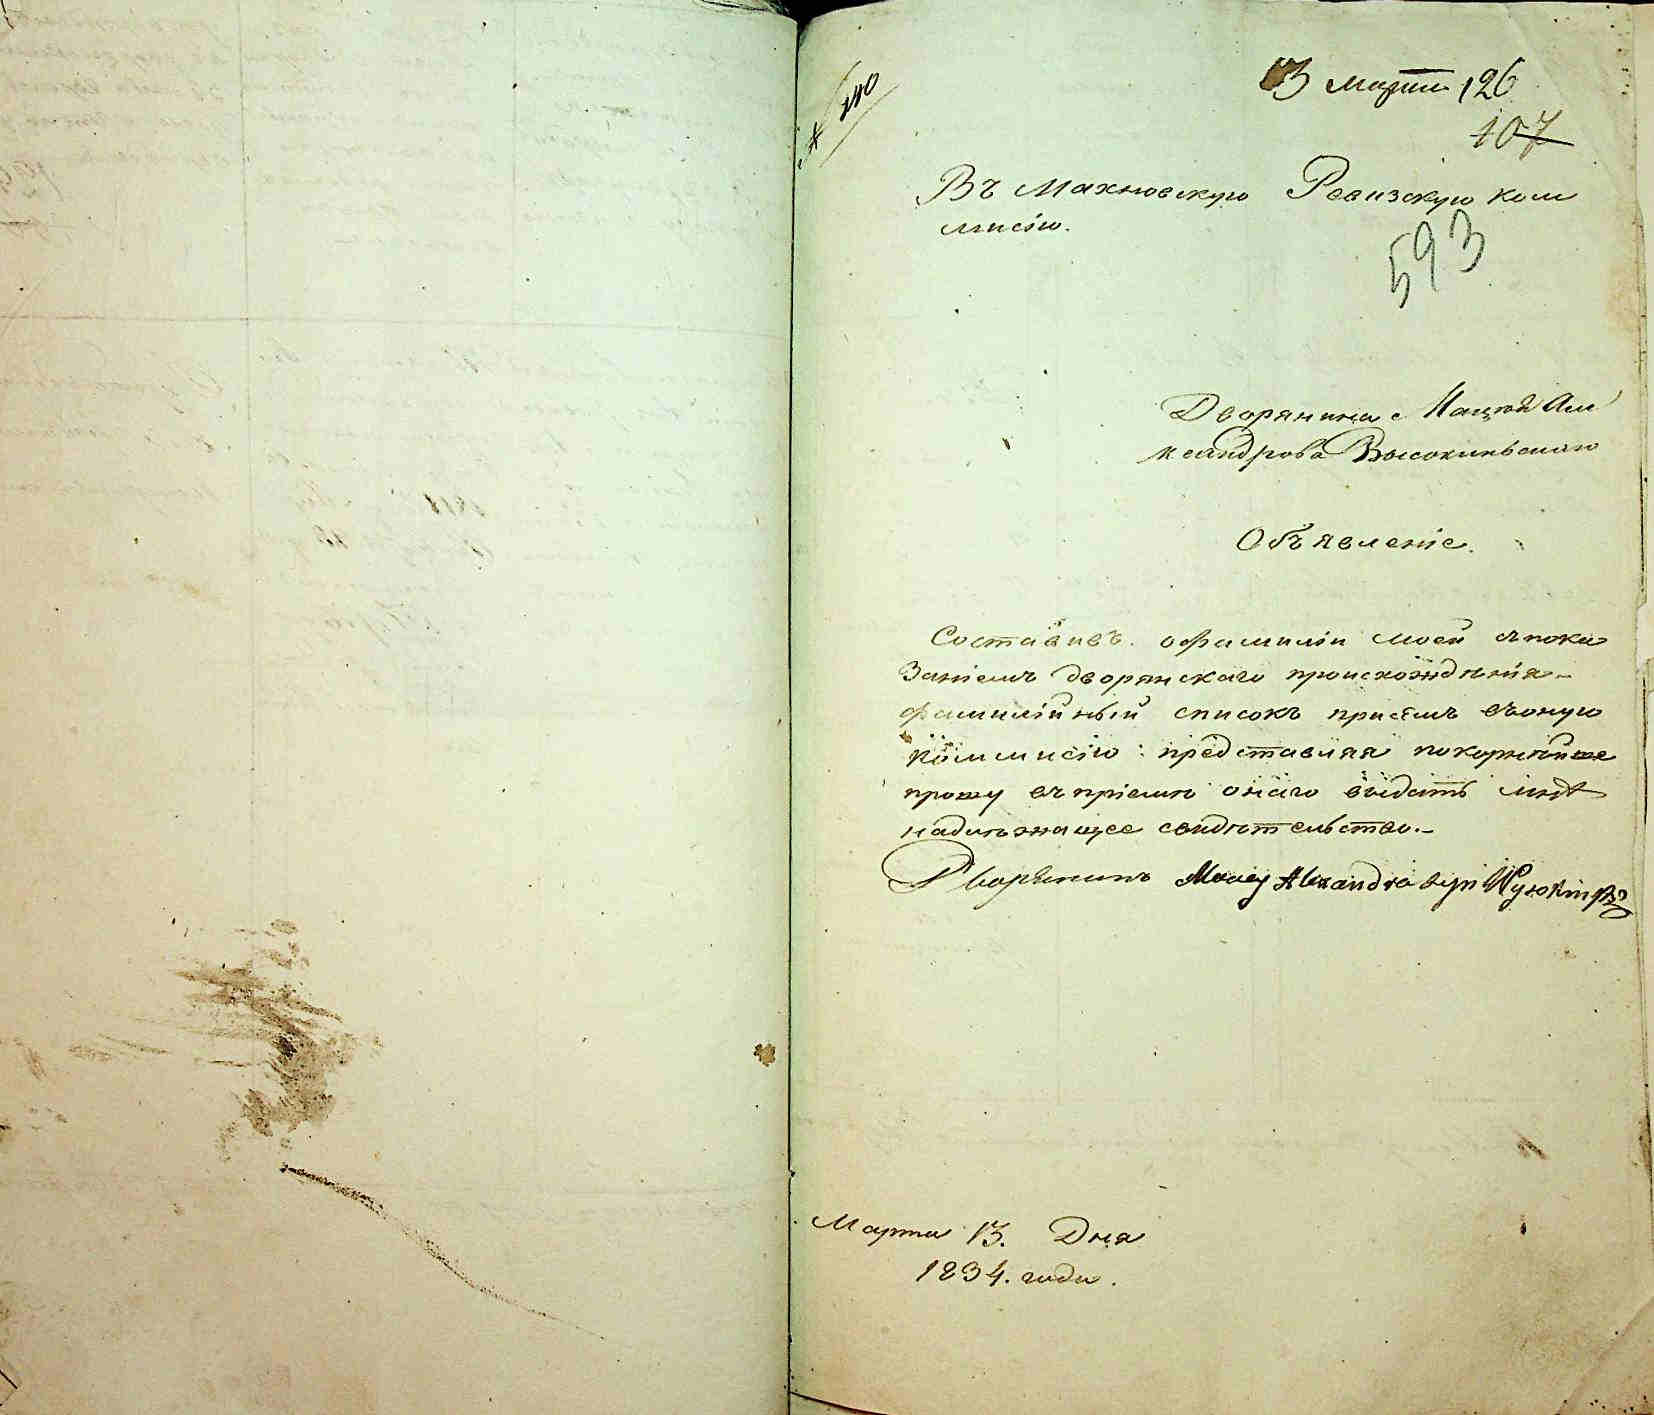 13 марта 126
107
№ 240
Въ Махновскую Ревизскую ком
мисію.
593
Дворянина Мацѣя Але
ксандрова Высокинскаго
Объявленіе.
Составивъ о фамиліи моей съ пока
заніемъ дворянскаго происхожденія
фамилійный списокъ присемъ въ оную
коммисію представляя покорнѣйше
прошу въ пріемѣ онаго выдать мнѣ
надлежащее свидѣтельство.
Дворянинъ Maciey Alexandra syn
Марта 13. Дня
1834. года.